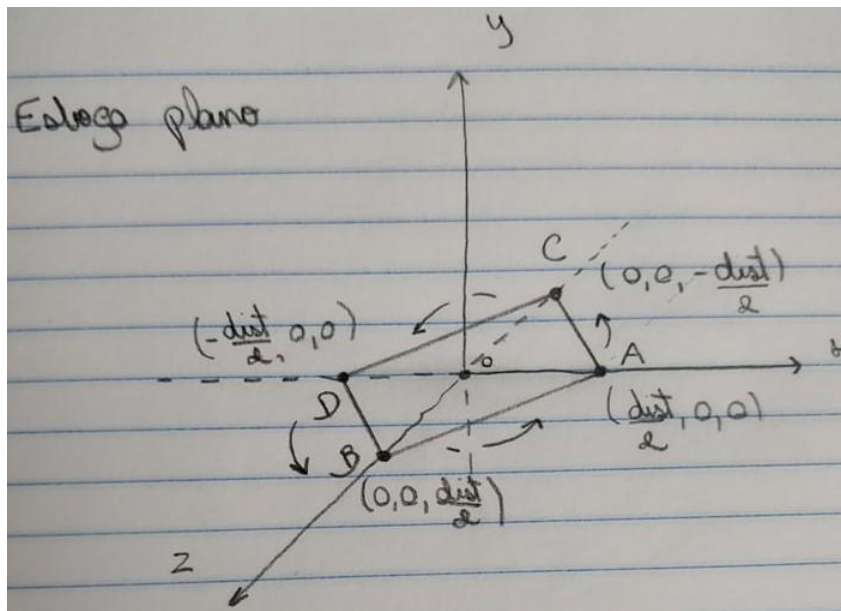 y
Esboço plano
C
(0,0,-dist/2)
(-dist/2,0,0)
o
A
D
(dist/2,0,0)
B
(0,0,dist/2)
Z